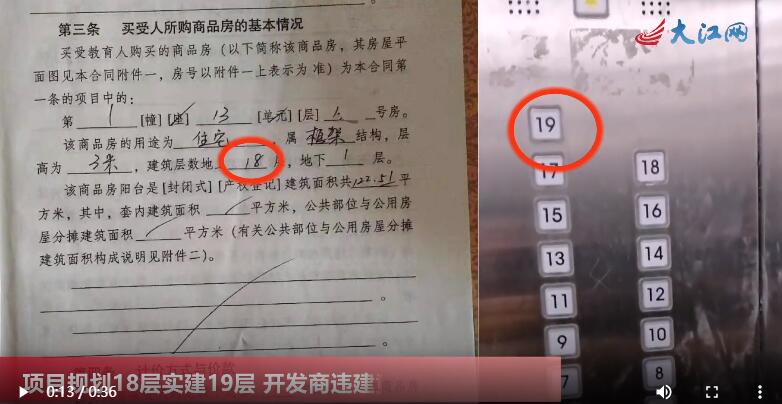 第三条 买受人所购商品房的基本情况
买受教育人购买的商品房（以下简称该商品房，其房屋平
面图见本合同附件一，房号以附件一上表示为 准）为本合同第
一条的项目中的：
第 1 [幢] [座] 13 [单元] [层] 号房。
该商品房的用途为 住宅 ，属 框架 结构，层
高为 3米 ，建筑层数地 18 ，地下 1 层。
该商品房阳台是 [封闭式] [产权登记] 建筑面积共 122.51 平
方米，其中，套内建筑面积 平方米，公共部位与公用房
屋分摊建筑面积 平方米（有关公共部位与公用房屋分摊
建筑面积构成说明见附件二）。
。
。
大江网
19
17 18
15 16
13 14
11 12
9 10
7 8
项目规划18层实建19层 开发商违建
0:13 / 0:36